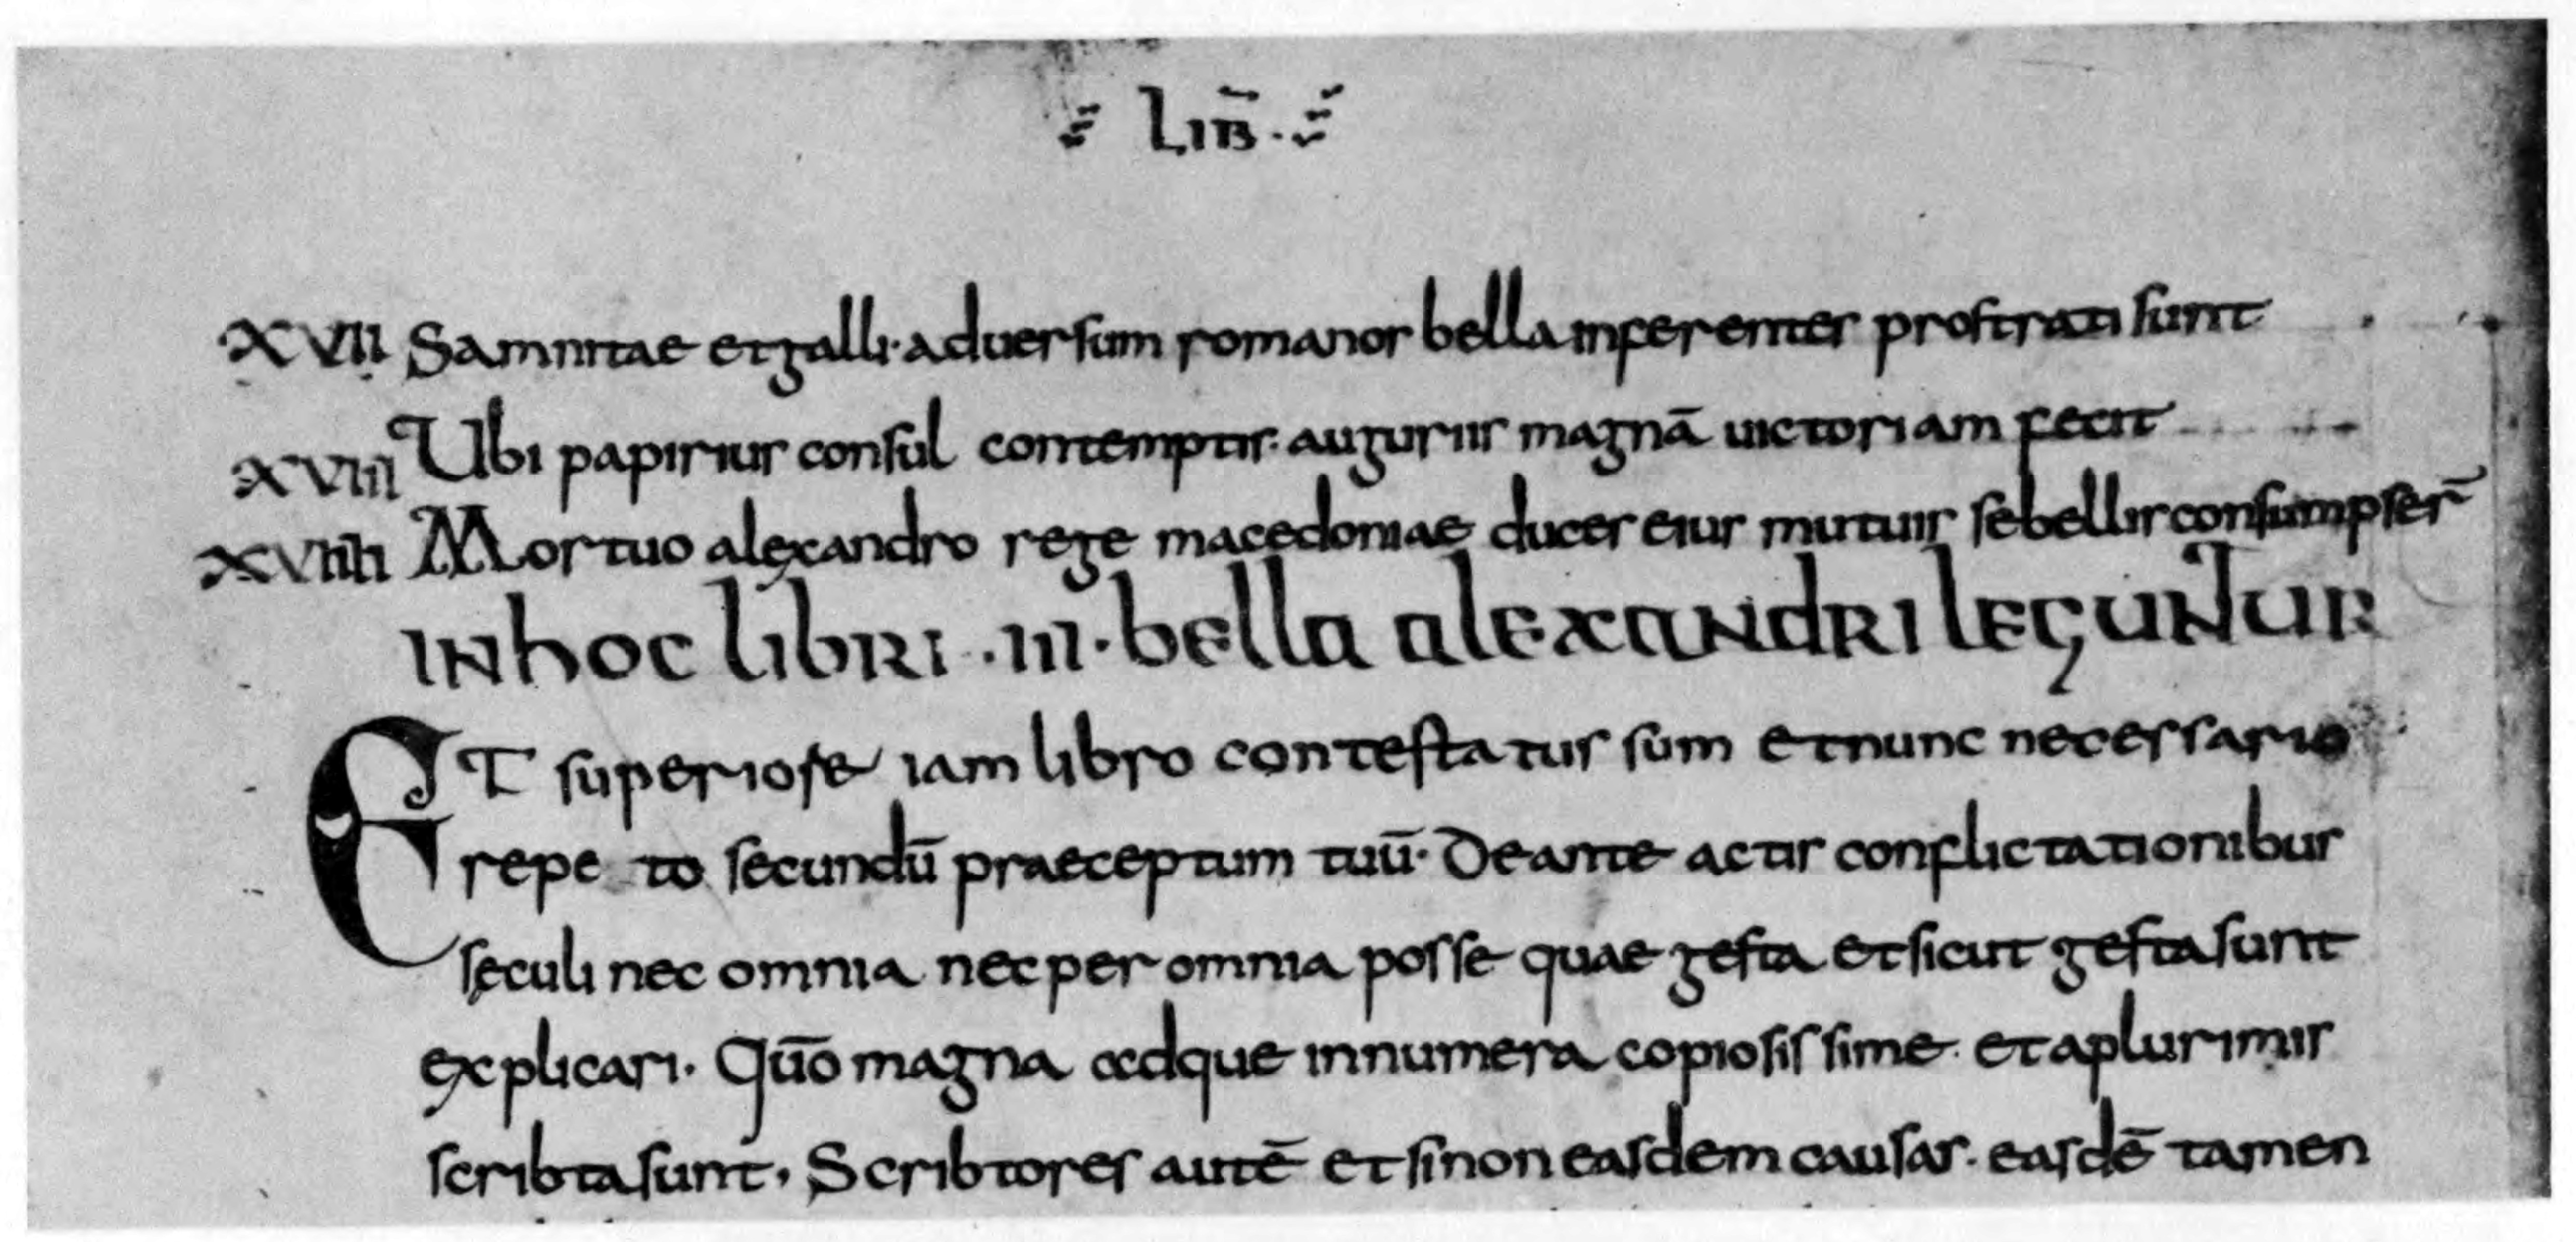 LIB̄.
XVII Samnitae et galli· aduersum romanos bella inferentes prostrati sunt
XVIII Ubi papirius consul contemptis· auguriis magnā uictoriam fecit
XVIIII Mortuo alexandro rege macedoniae duces eius mutuis se bellis consumpser̄
IN hoc libri ·III· bella alexandri leguntur
ET superiore iam libro contestatus sum et nunc necessario
repeto secundū praeceptum tuū· De ante actis conflictationibus
seculi nec omnia nec per omnia posse quae gesta et sicut gesta sunt
explicari· Quō magna adque innumera copiosissime· et a plurimis
scribta sunt, Scribtores autē et si non easdem causas· easdē tamen